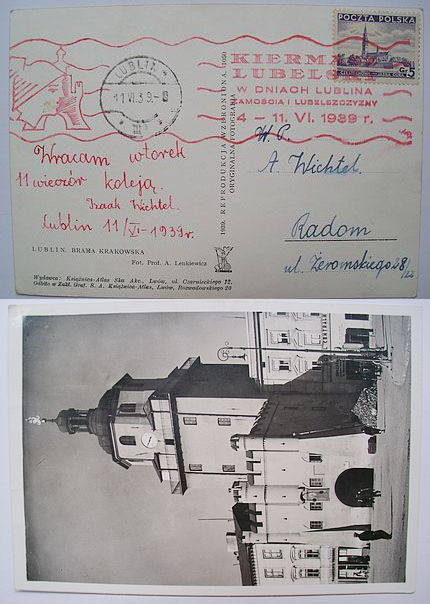 POCZTA POLSKA
15
LUBLIN
11 VI 39.-8
KIERMASZ
LUBELSKI
W DNIACH LUBLINA
ZAMOŚCIA I LUBELSZCZYZNY
4 – 11. VI. 1939 r.
Wracam wtorek
11 wieczór koleją.
Izaak Wichtel.
Lublin 11/VI-1939r.
LUBLIN. BRAMA KRAKOWSKA
Fot. Prof. A. Lenkiewicz
Wydawca: Książnica-Atlas Ska Akc., Lwów, ul. Czarnieckiego 12.
Odbito w Zakł. Graf. S. A. Książnica-Atlas, Lwów, Bourlardowskiego 20
REPRODUKCJA WZBRONIONA.
ORYGINALNA FOTOGRAFIA
W. P.
A. Wichtel
Radom
ul. Żeromskiego 28/22